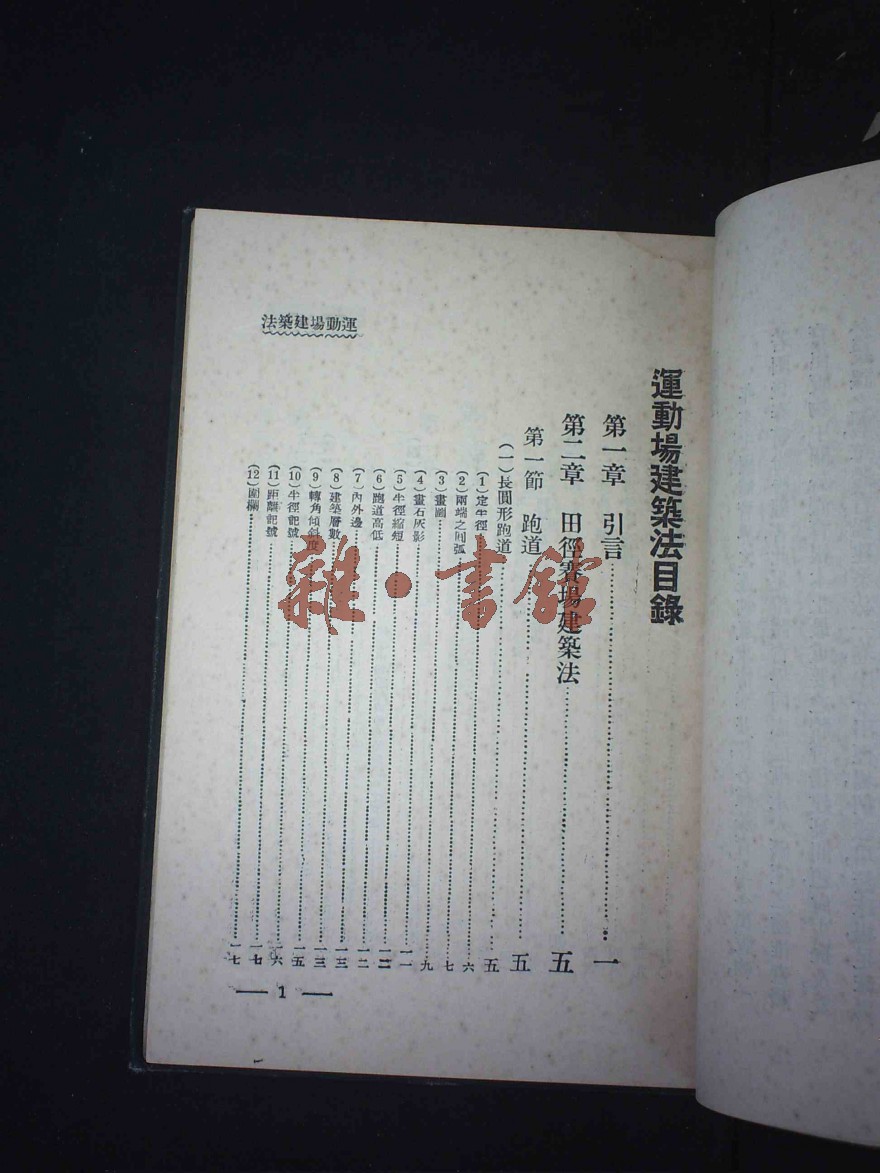 運動場建築法
運動場建築法目錄
第一章 引言……一
第二章 田徑賽場建築法……五
第一節 跑道……五
(一)長圓形跑道……五
(1)定半徑……六
(2)兩端之圓弧……七
(3)畫圖……九
(4)畫石灰影……一一
(5)半徑縮短……一二
(6)跑道高低……一二
(7)內外邊……一三
(8)建築層數……一三
(9)轉角傾斜度……一五
(10)半徑記號……一六
(11)距離記號……一七
(12)圍欄……一七
— 1 —
雜·書館